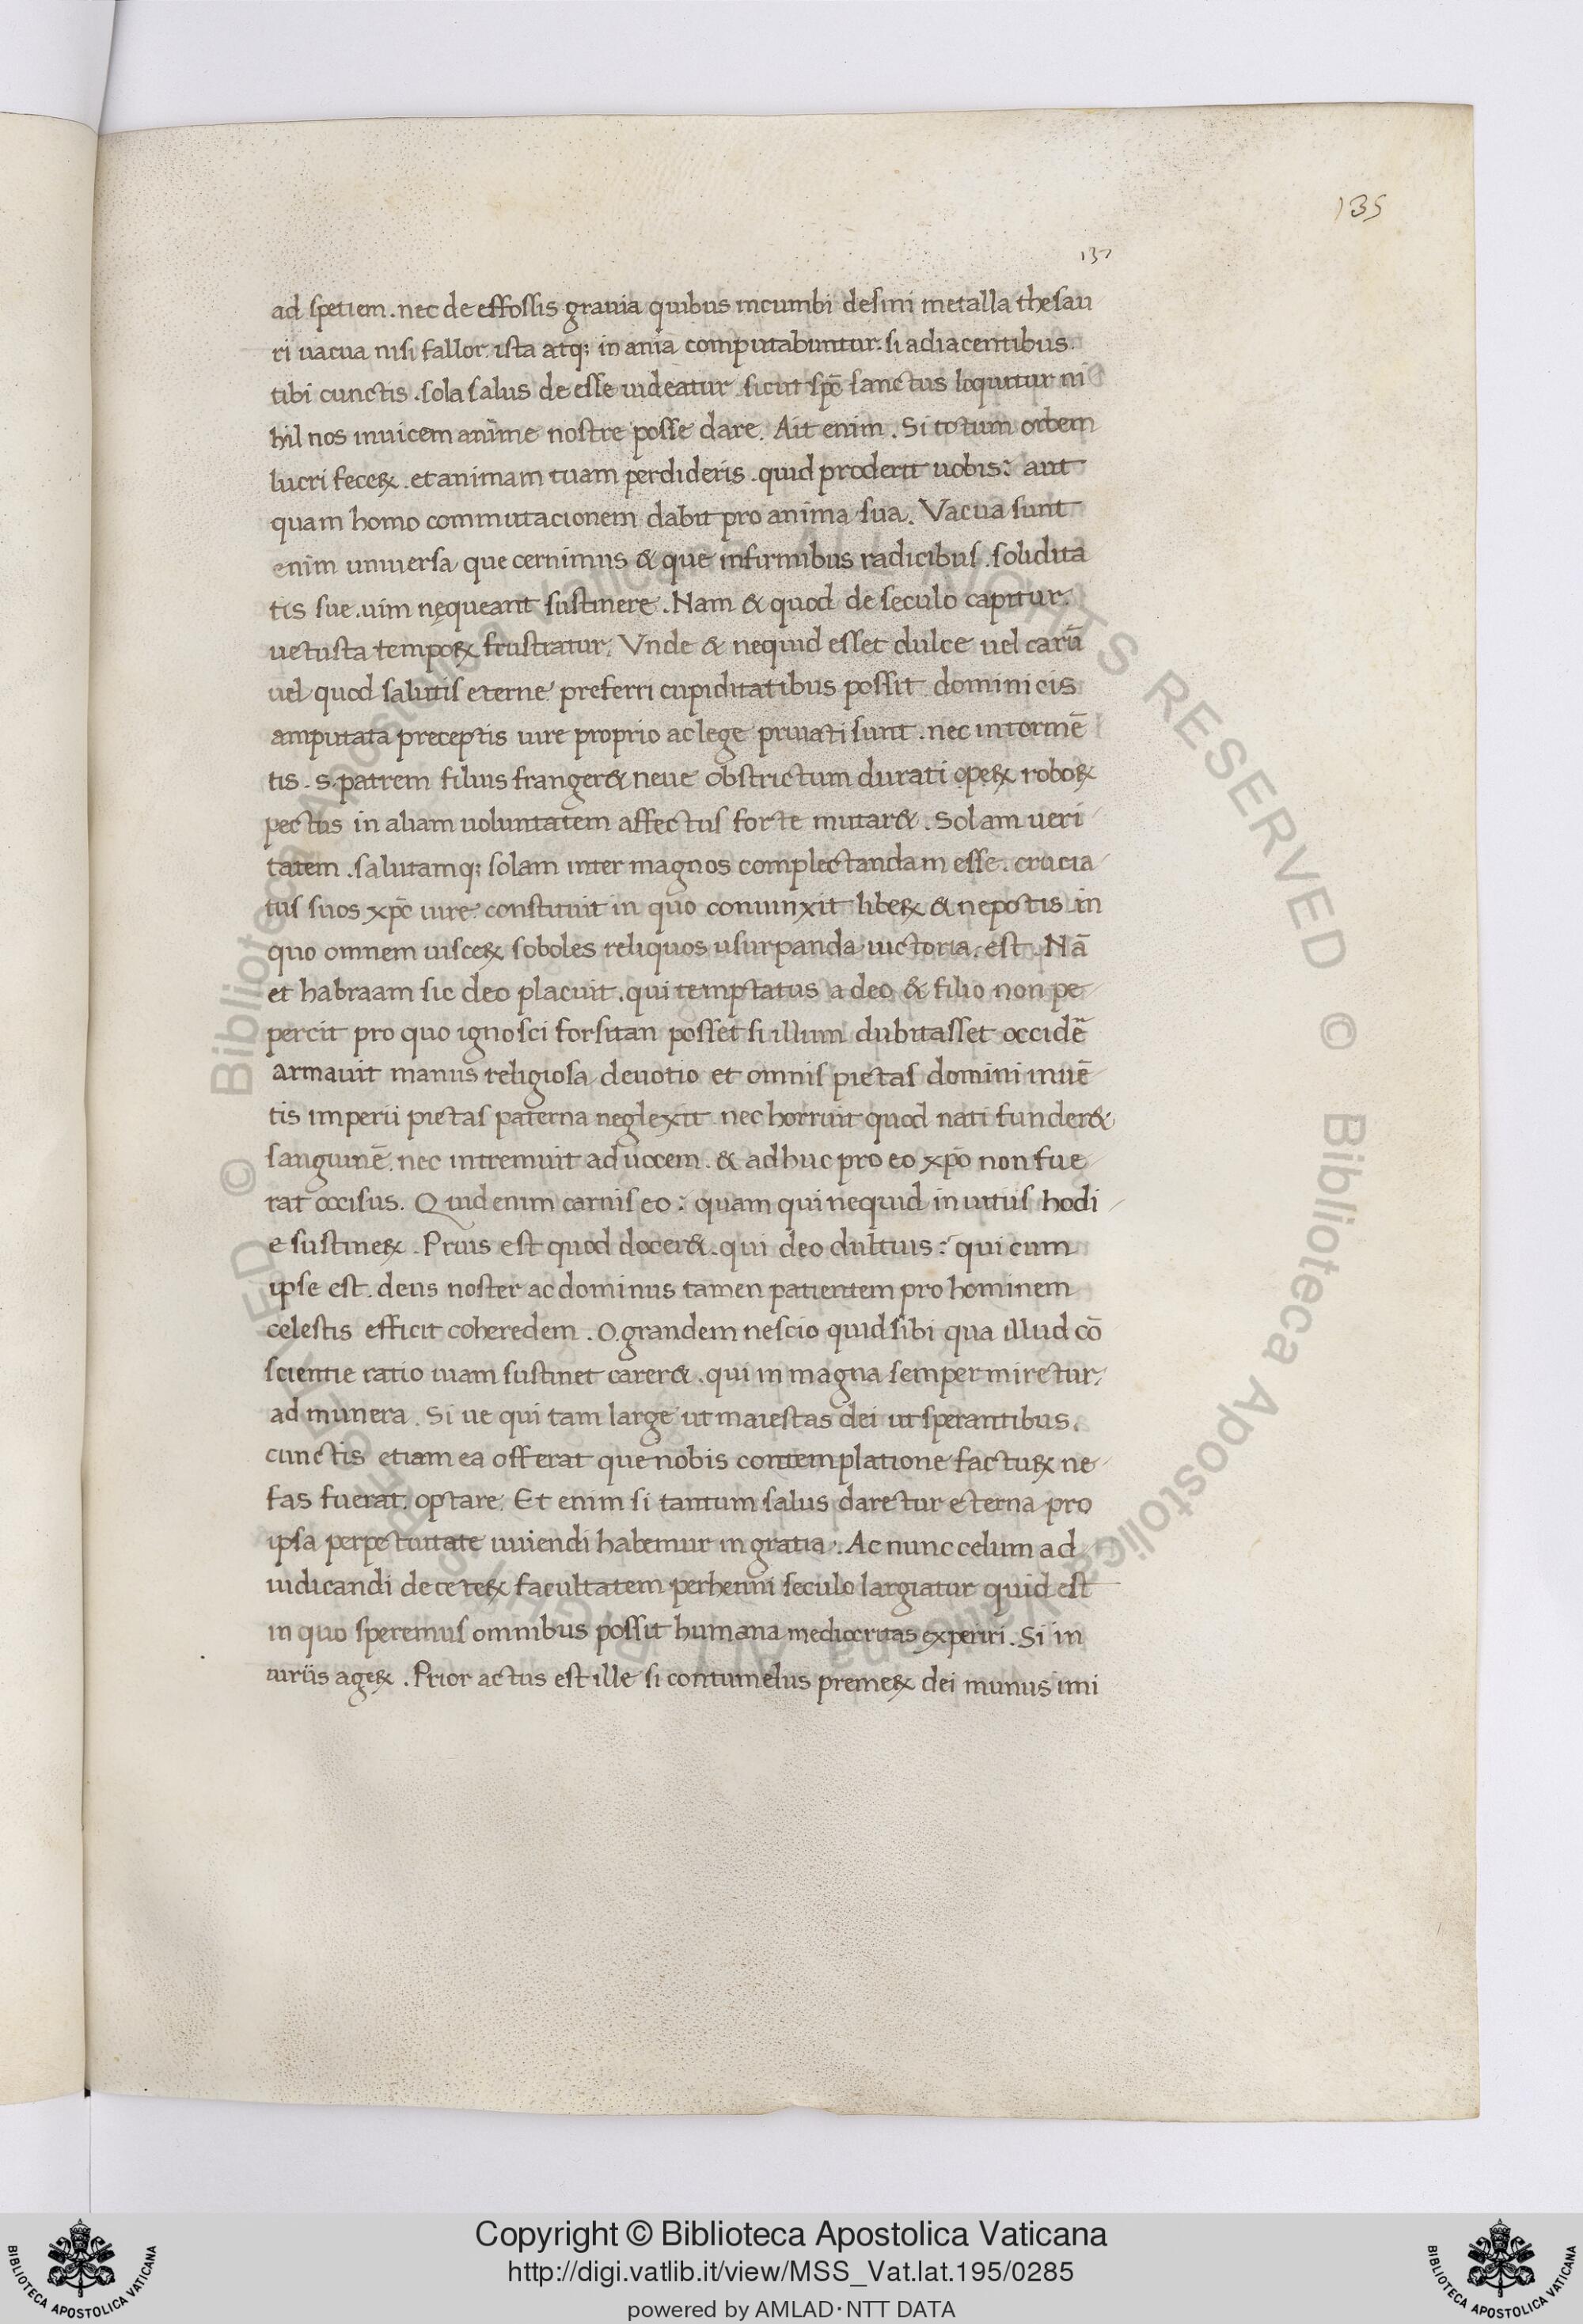 135
137
ad spetiem. nec de effossis grauia quibus incumbi desini metalla thesau
ri uacua nisi fallor. ista atq; in ania computabuntur. si adiacentibus.
tibi cunctis. sola salus de esse uideatur. sicut sp̄c sanctus loquitur ni
hil nos inuicem anime nostre posse dare. Ait enim. Si totum orbem
lucri feceꝝ. et animam tuam perdideris. quid proderit uobis: aut
quam homo commutacionem dabit pro anima sua. Vacua sunt
enim uniuersa que cernimus & que infirmibus radicibus. solidita
tis sue. uim nęqueant sustinere. Nam & quod de seculo capitur.
uetusta tempoꝝ frustratur. Vnde & nequid esset dulce uel carū
uel quod salutis eterne preferri cupiditatibus possit dominicis
amputata preceptis iure proprio ac lege priuati sunt. nec in tormē
tis. s. patrem filius franger& neue obstrictum durati opeꝝ roboꝝ
pectus in aliam uoluntatem affectus forte mutar&. Solam ueri
tatem. salutamq; solam inter magnos complectandam esse. crucia
tus suos xp̄c iure constituit in quo coniunxit libeꝝ & nepotis in
quo omnem uisceꝝ soboles reliquos usurpanda uictoria. est. Nā
et habraam sic deo placuit. qui temptatus a deo & filio non pe
percit pro quo ignosci forsitan posset si illum dubitasset occidē
armauit manus religiosa deuotio et omnis pietas domini iuuē
tis imperii pietas paterna neglexit nec horruit quod nati funder&
sanguinē. nec intremuit ad uocem. & adhuc pro eo xp̄o non fue
rat occisus. Quid enim carnis eo: quam qui nequid inuitus hodi
e sustineꝝ. Prius est quod docer&. qui deo dultius: qui cum
ipse est. deus noster ac dominus tamen patientem pro hominem
celestis efficit coheredem. O grandem nescio quid sibi qua illud cō
scientie ratio uiam sustinet carer&. qui in magna semper miretur.
ad munera. Si ue qui tam large ut maiestas dei ut sperantibus.
cunctis etiam ea offerat que nobis contemplatione factuꝝ ne
fas fuerat. optare. Et enim si tantum salus daretur eterna pro
ipsa perpetuitate uiuendi habemur in gratia. Ac nunc celum ad
iudicandi de ceteꝝ facultatem perhenni seculo largiatur quid est
in quo speremus omnibus possit humana mediocritas experiri. Si in
iuriis ageꝝ. Prior actus est ille si contumelus premeꝝ dei munus imi
Copyright © Biblioteca Apostolica Vaticana
http://digi.vatlib.it/view/MSS_Vat.lat.195/0285
powered by AMLAD·NTT DATA
BIBLIOTECA APOSTOLICA VATICANA
BIBLIOTECA APOSTOLICA VATICANA